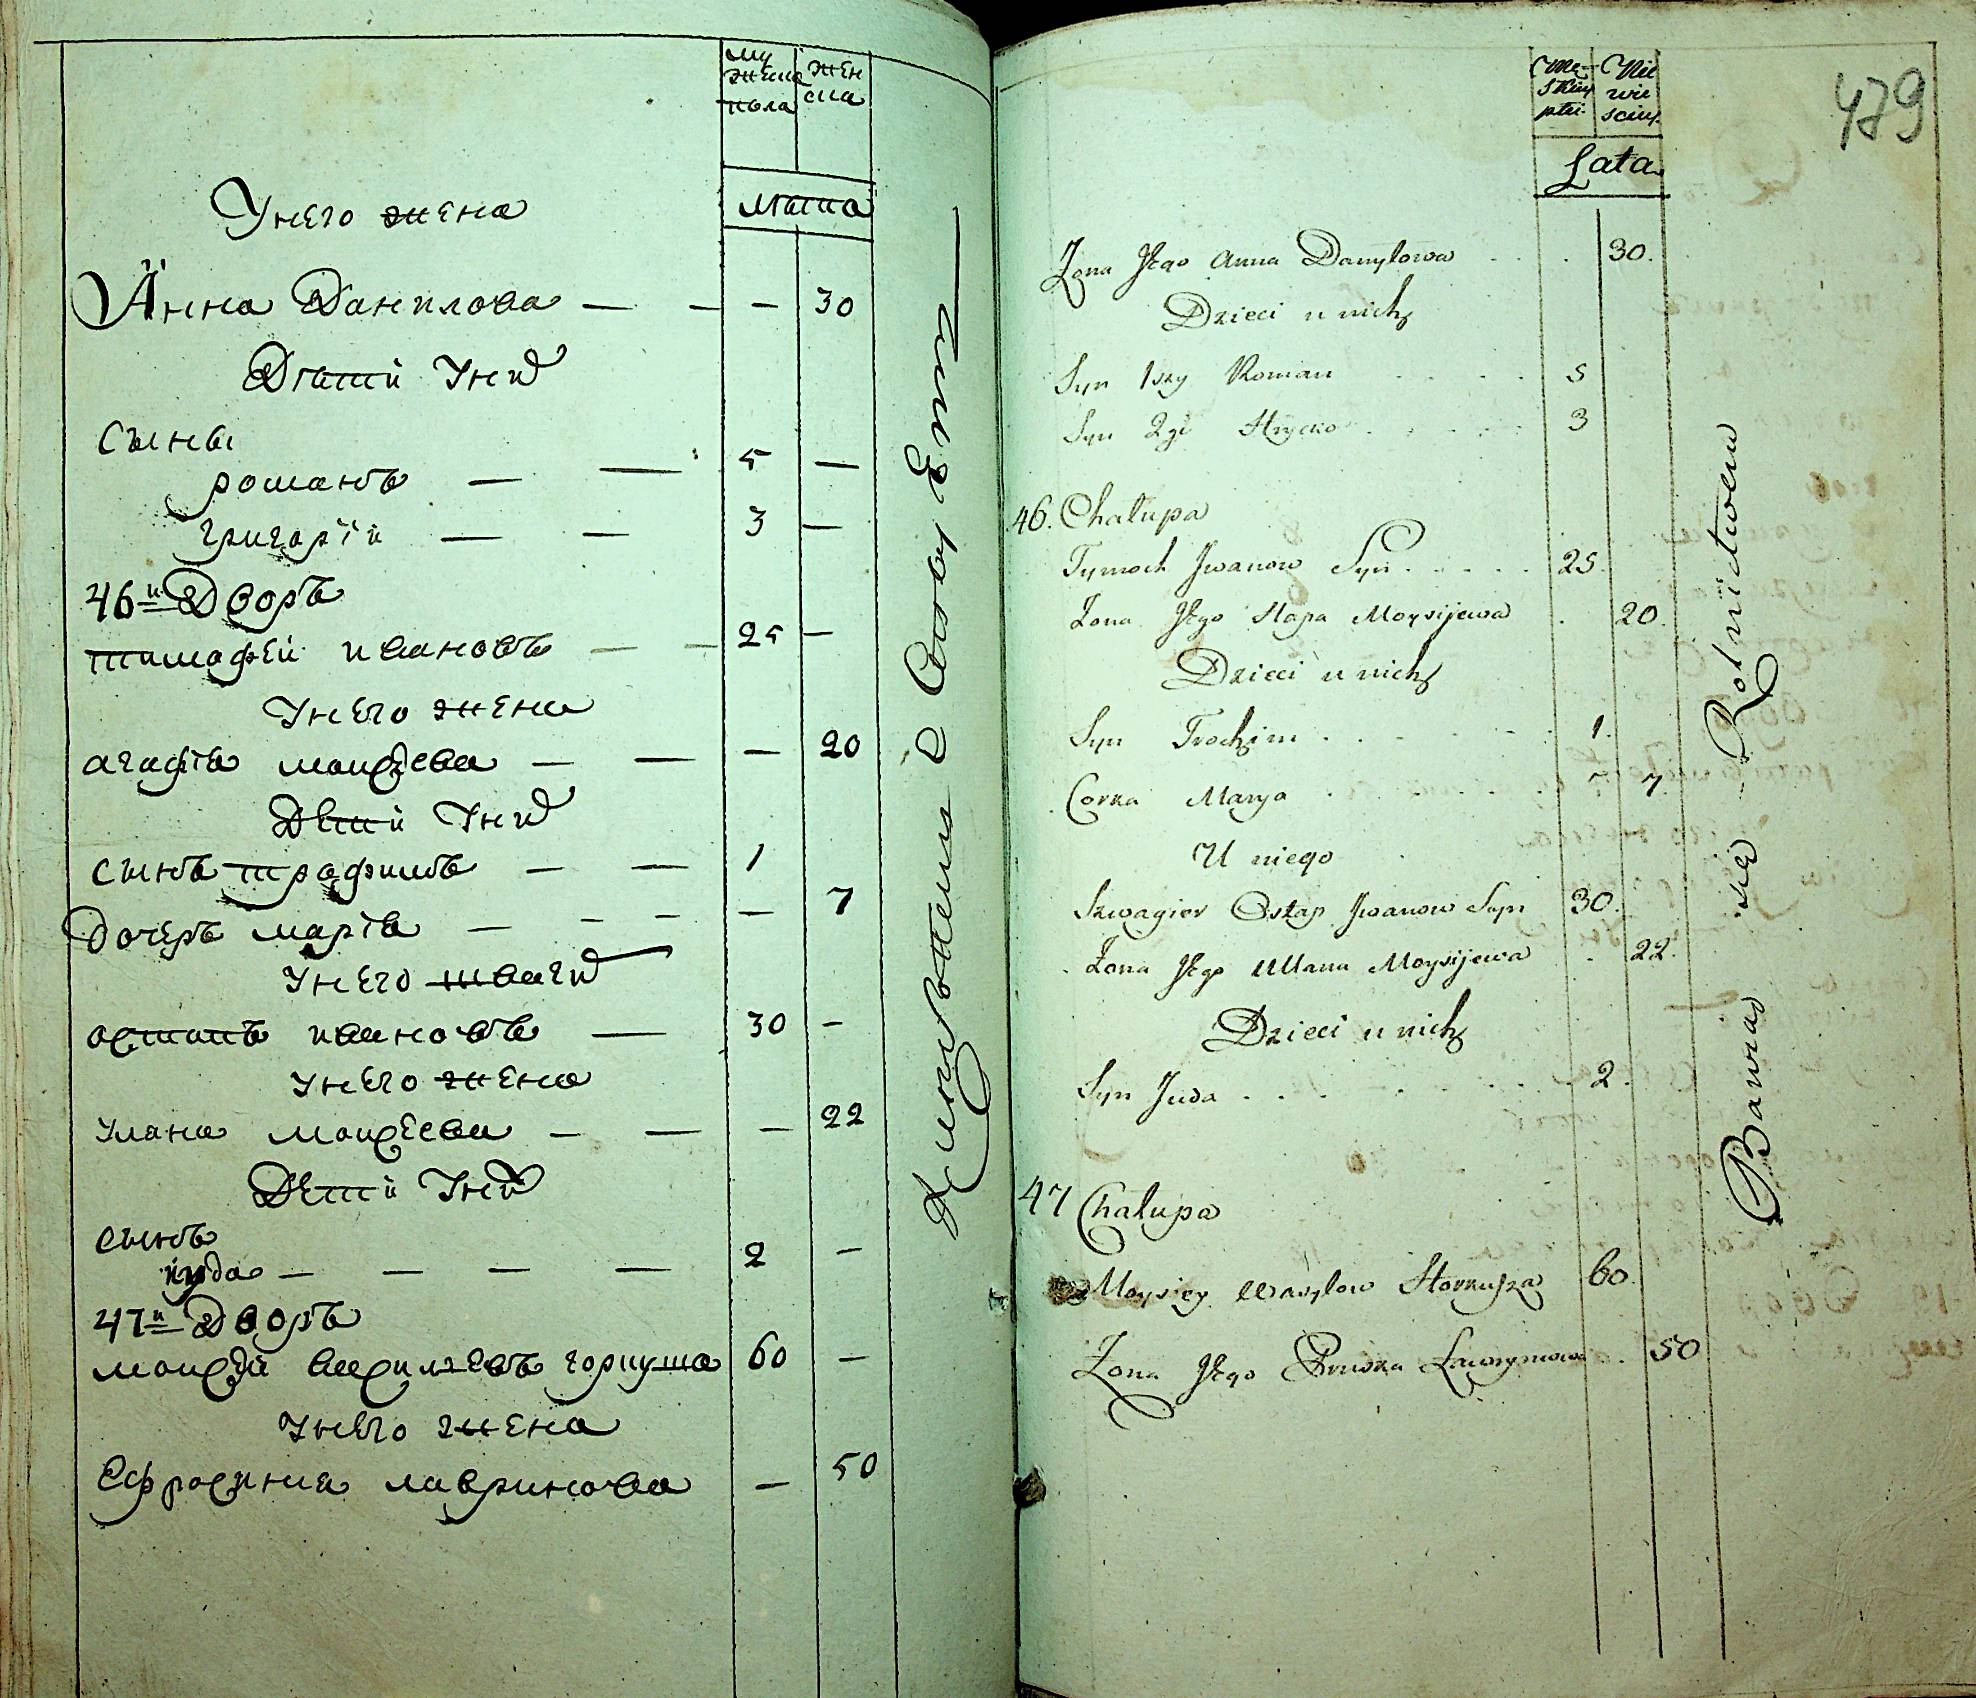 му
жеска
пола
жен
ска
Лѣта
У него жена
Анна Данилова — — — 30
Дѣти У них
Сыны
романъ — — 5 —
григорiй — — 3 —
46й Дворъ
тимофей ивановъ — — 25 —
У него жена
агафiя моисеева — — — 20
Дѣти У них
сынъ трофимъ — — 1
дочеръ марiя — — — — 7
У него швагер
остапъ ивановъ — 30 —
У него жена
улана моисеева — — — 22
Дѣти У них
сынъ
iуда — — — — 2 —
47й Дворъ
моисей василѣевъ горкуша 60 —
У него жена
Ефросиния лавринова — 50
479
Męz
Skiey
płci
Nie
wie
sciey
Lata
Zona Jego Anna Danyłowa . . . 30.
Dzieci u nich
Syn 1szy Roman . . . . 5
Syn 2gi Hrycko . . . . . 3
46. Chałupa
Tymoch Jwanow Syn . . . . . 25.
Zona Jego Hapa Moysijewa . 20.
Dzieci u nich
Syn Trochim . . . . . . 1.
Corka Marya . . . . . 7
U niego
Szwagier Ostap Jwanow Syn 30.
Zona Jego Ullana Moysijewa . 22.
Dzieci u nich
Syn Juda . . . . . . . 2.
47 Chałupa
Moysiey Wasylow Horkusza 60.
Zona Jego Pruska Lawrynowa . 50
Bawiao sie Rolnictwem